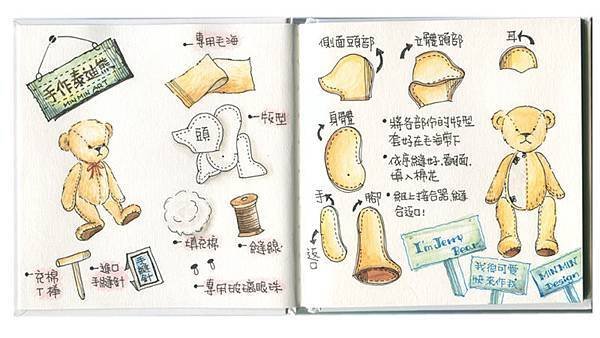 手作泰迪熊
MIN MIN ART
專用毛海
版型
頭
填充棉
縫線
充棉
T棒
進口
手縫針
手縫針
專用玻璃眼珠
側面頭部
立體頭部
耳
身體
將各部份的版型
套好在毛海剪下
依序縫好.翻面.
填入棉花
組上接合器,縫
合返口!
手
腳
返口
I'm Jerry
Bear
我很可愛
快來作我
MIN MIN
Design